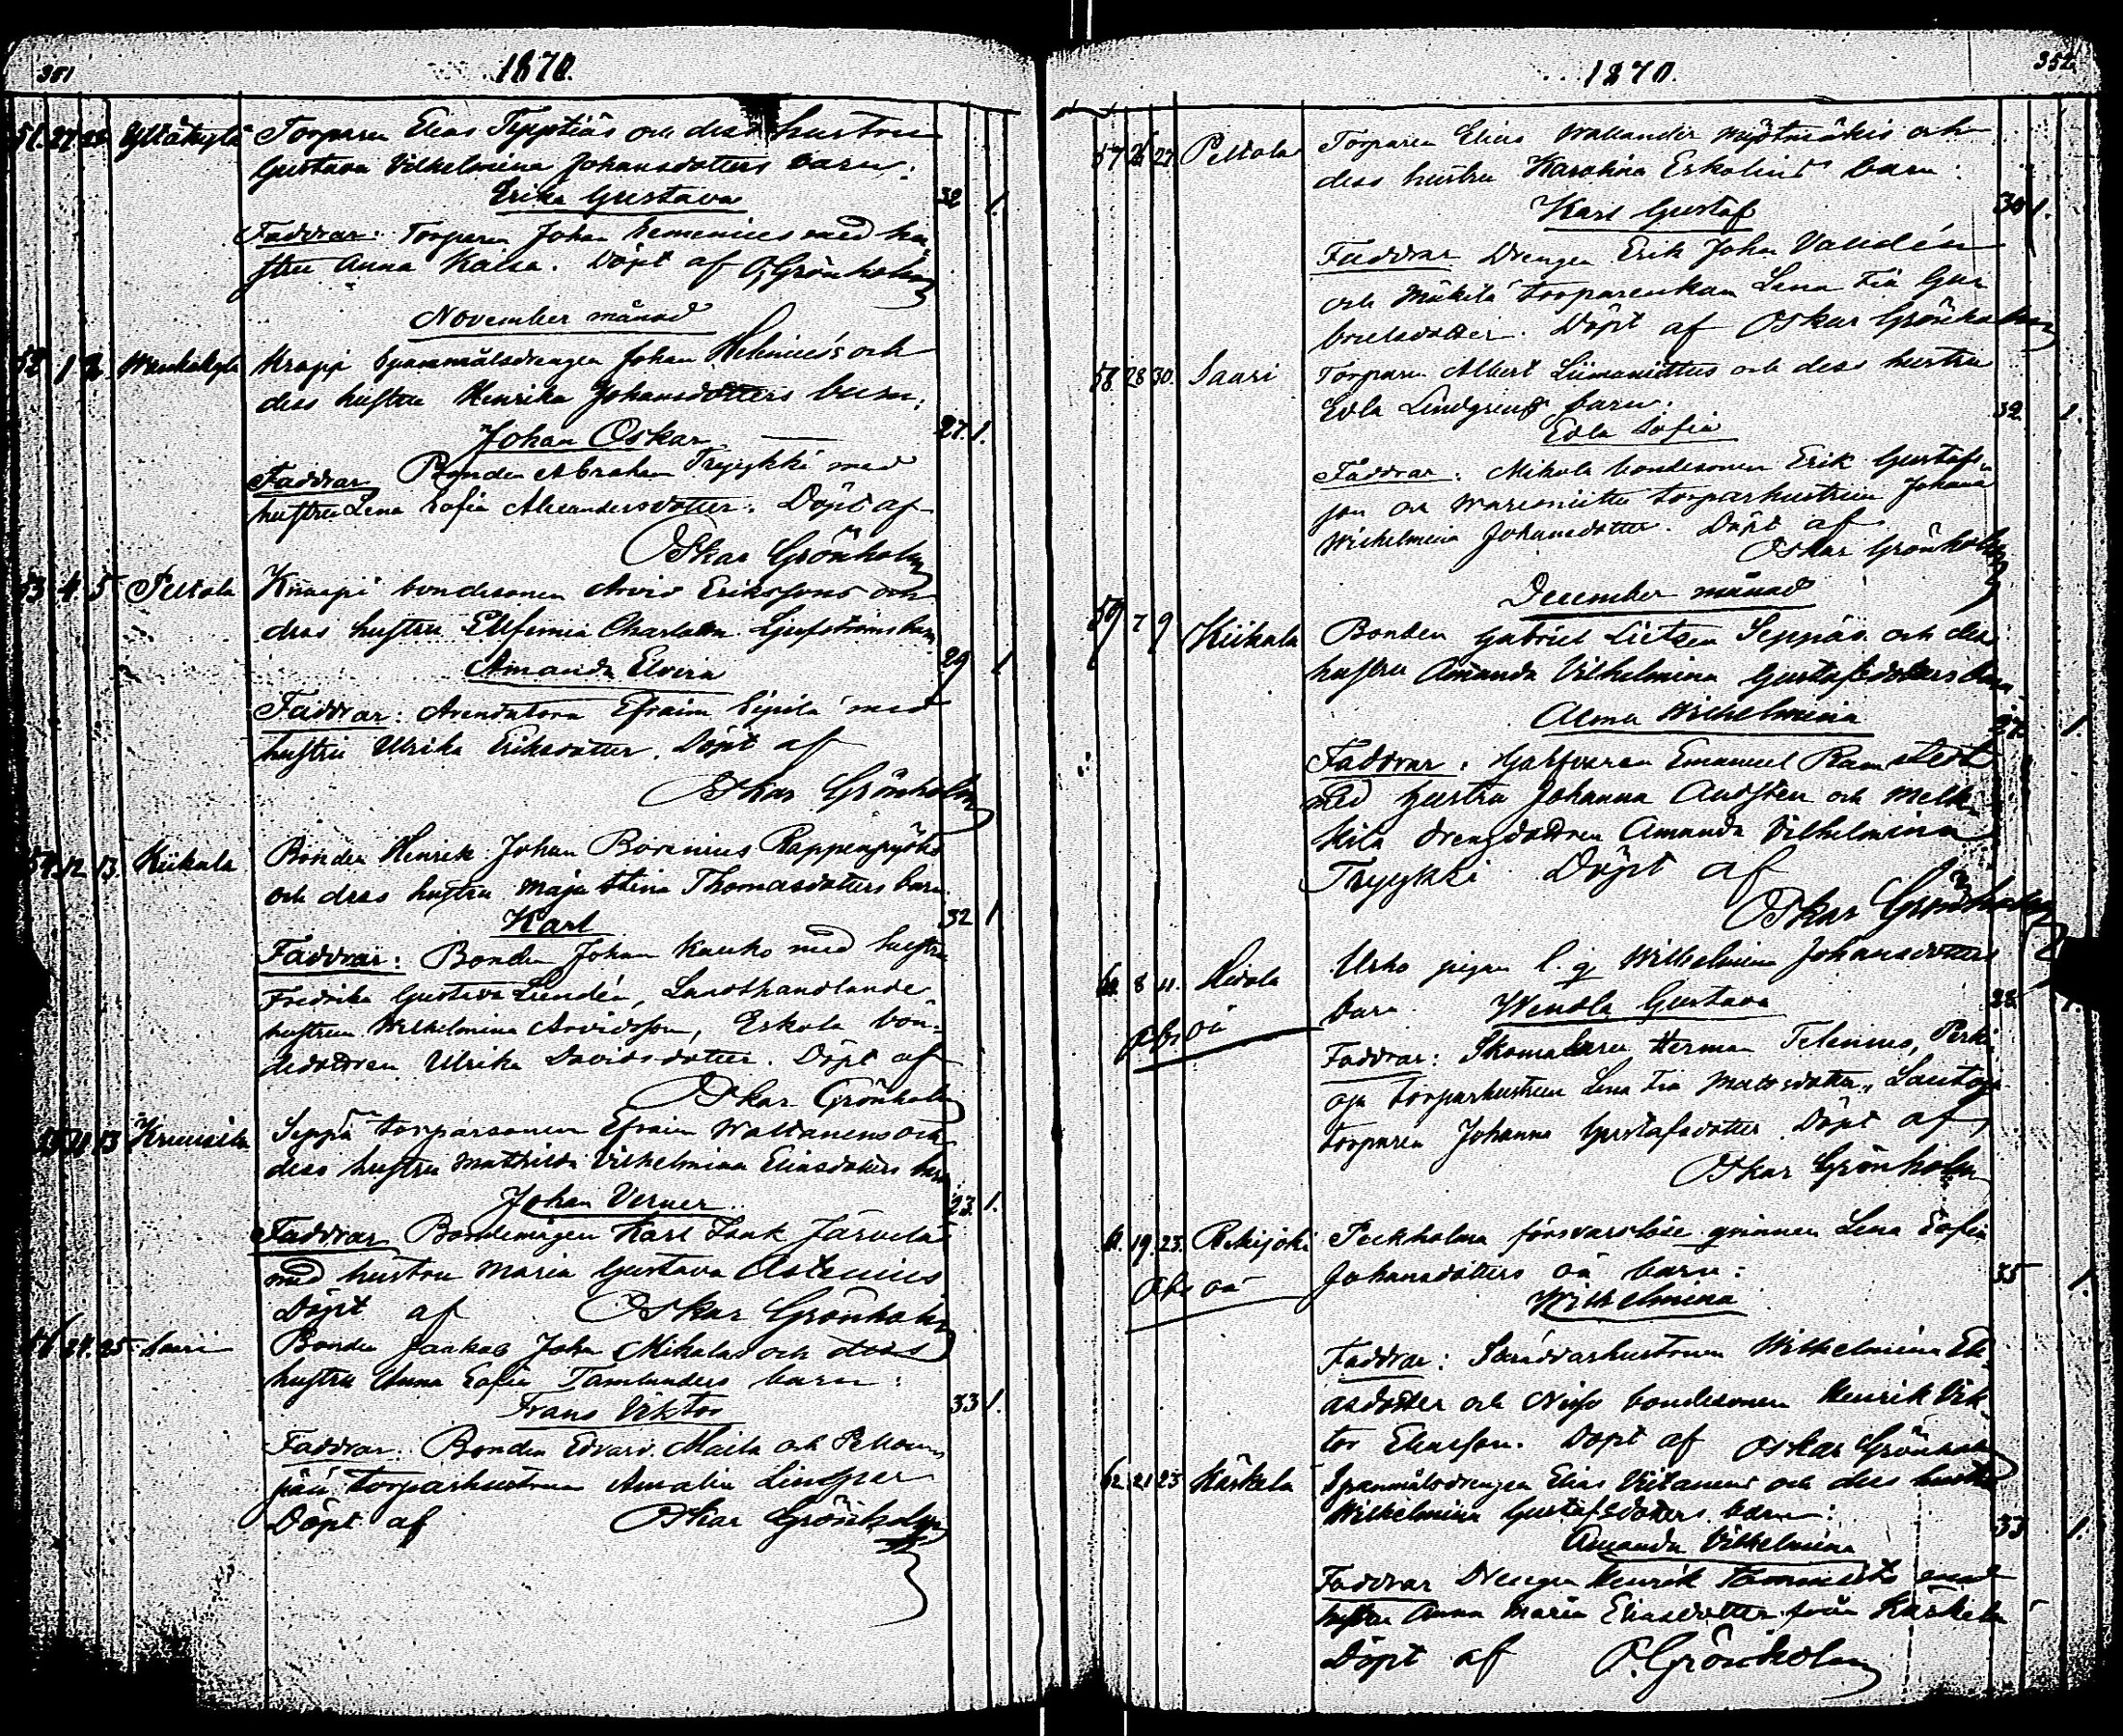 351
1870.
51. 27 28 Yltäkylä Torparen Elias Tepptiäs och dess hustru
Gustava Vilhelmina Johansdotters barn:
Erika Gustava
32 1.
Faddrar: Torparen Johan med hu-
stru Anna Kaisa. Döpt af O. Grönholm
November månad
52 1 2. Krapi Spannmålsdrengen Johan Helenius's och
dess hustru Henrika Johansdotters barn:
Johan Oskar
27. 1.
Faddrar Bonden Abraham Tryykki med
hustru Lena Sofia Alexandersdotter. Döpt af
Oskar Grönholm
53 4 5 Peltola Knaapi bondesonen Arvid Erikssons och
dess hustru Eufemia Charlotta Ljufströms barn
Amanda Elvira
29 1
Faddrar: Arendatorn Efraim Sipilä med
hustru Ulrika Eriksdotter. Döpt af
Oskar Grönholm
54. 12 13. Kiikala Bonden Henrik Johan Borenius
och dess hustru Maja Stina Thomasdotters barn.
Karl
32 1
Faddrar: Bonden Johan Kauko med hustru
Fredrika Gustava Lundén, Landthandlande
hustrun Wilhelmina Arvidsson, Eskola bon-
dedottren Ulrika Davidsdotter. Döpt af
Oskar Grönholm
55 11 13 Seppä torparsonen Efraim Waltanens och
dess hustru Mathilda Vilhelmina Eliasdotters barn
Johan Verner
23. 1.
Faddrar Bondemågen Karl Isak Järvelä
med hustru Maria Gustava Astenius
Döpt af Oskar Grönholm
56 24. 25 Saari Bonden Jaakab Johan Mikolas och dess
hustru Anna Sofia Tamlanders barn:
Frans Viktor
33 1.
Faddrar. Bonden Edvard Maila och
pää torparhustrun Amalia Lindgren
Döpt af Oskar Grönholm
352
1870.
57 26 27 Peltola Torparen Elias Wallander Myötmäkis och
dess hustru Karolina Eskolins barn:
Karl Gustaf
30 1.
Faddrar Drengen Erik Johan Valldén
och Mäkilä torparenkan Lena Fia Gu-
brielsdotter. Döpt af Oskar Grönholm
58. 28 30. Saari Torparen Albert Liimanittus och dess hustru
Edla Lindgrens barn:
Edla Sofia
32 1.
Faddrar: Mikola bondesonen Erik Gustafs-
son och torparhustrun Johana
Wilhelmina Johansdotter. Döpt af
Oskar Grönholm
December månad
59 7 9 Kiikala Bonden Gabriel Lietsen Seppäs och dess
hustru Amanda Vilhelmina Gustafsdotters barn.
Alma Wilhelmina
27. 1.
Faddrar: Garfvaren Emanuel Ramstedt
med hustru Johanna Andsten och
kilä drengdottren Amanda Vilhelmina
Tryykki Döpt af
Oskar Grönholm
60. 8 11. Urho pigan l. q. Wilhelmina Johansdotters
oä
barn. Wendla Gustava
28 1.
Faddrar: Skomakaren Herman Telenius,
oja torparhustrun Lena Fia Matsdotter,
torparen Johanna Gustafsdotter Döpt af
Oskar Grönholm
61. 19. 23. Rekijoki Peckholma försvarslöse qvinnan Lena Sofia
oä
Johansdotters oä barn:
Wilhelmina
35 1.
Faddrar: Skräddarhustrun Wilhelmina Eli-
asdotter och bondesonen Henrik Vik-
tor Eliasson. Döpt af Oskar Grönholm
62. 21 23 Kärkelä Spanmålsdrengen Elias Viitanens och dess hustru
Wilhelmina Gustafsdotters barn:
Amanda Vilhelmina
33 1.
Faddrar Drengen Henrik Tammisto med
hustru Anna Maria Eliasdotter från Kärkelä
Döpt af O. Grönholm